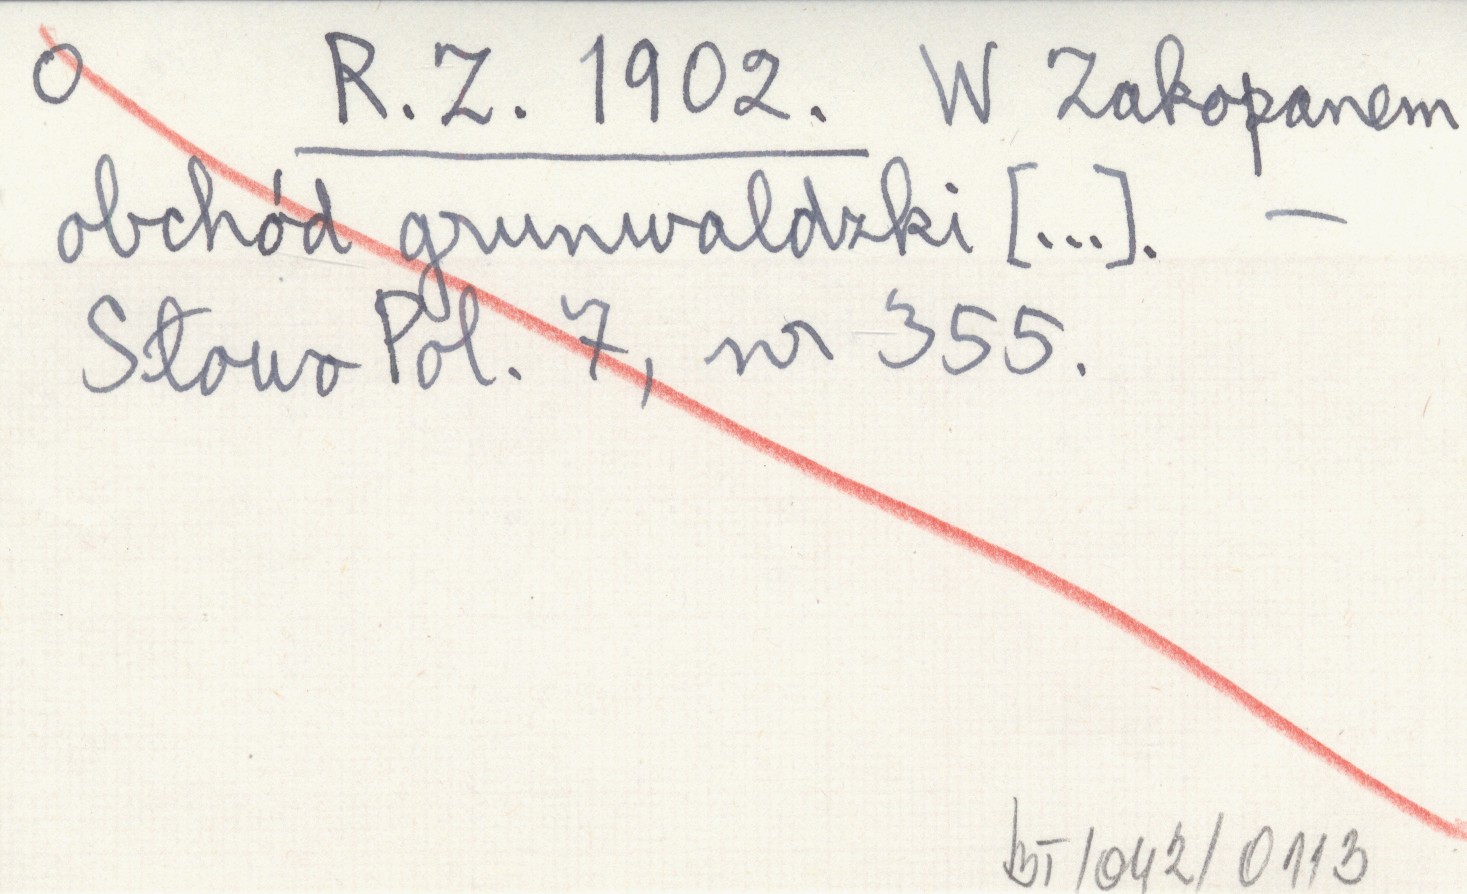 O R.Z. 1902. W Zakopanem
obchód grunwaldzki [...]. —
Słowo Pol. 7, nr 355.
BT/042/0113